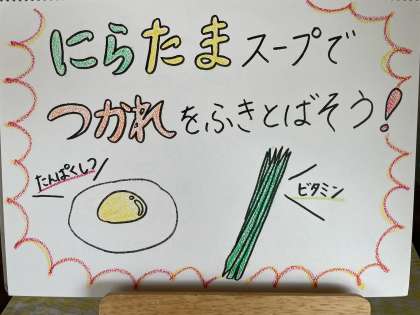 にらたまスープで
つかれをふきとばそう!
たんぱくしつ
ビタミン